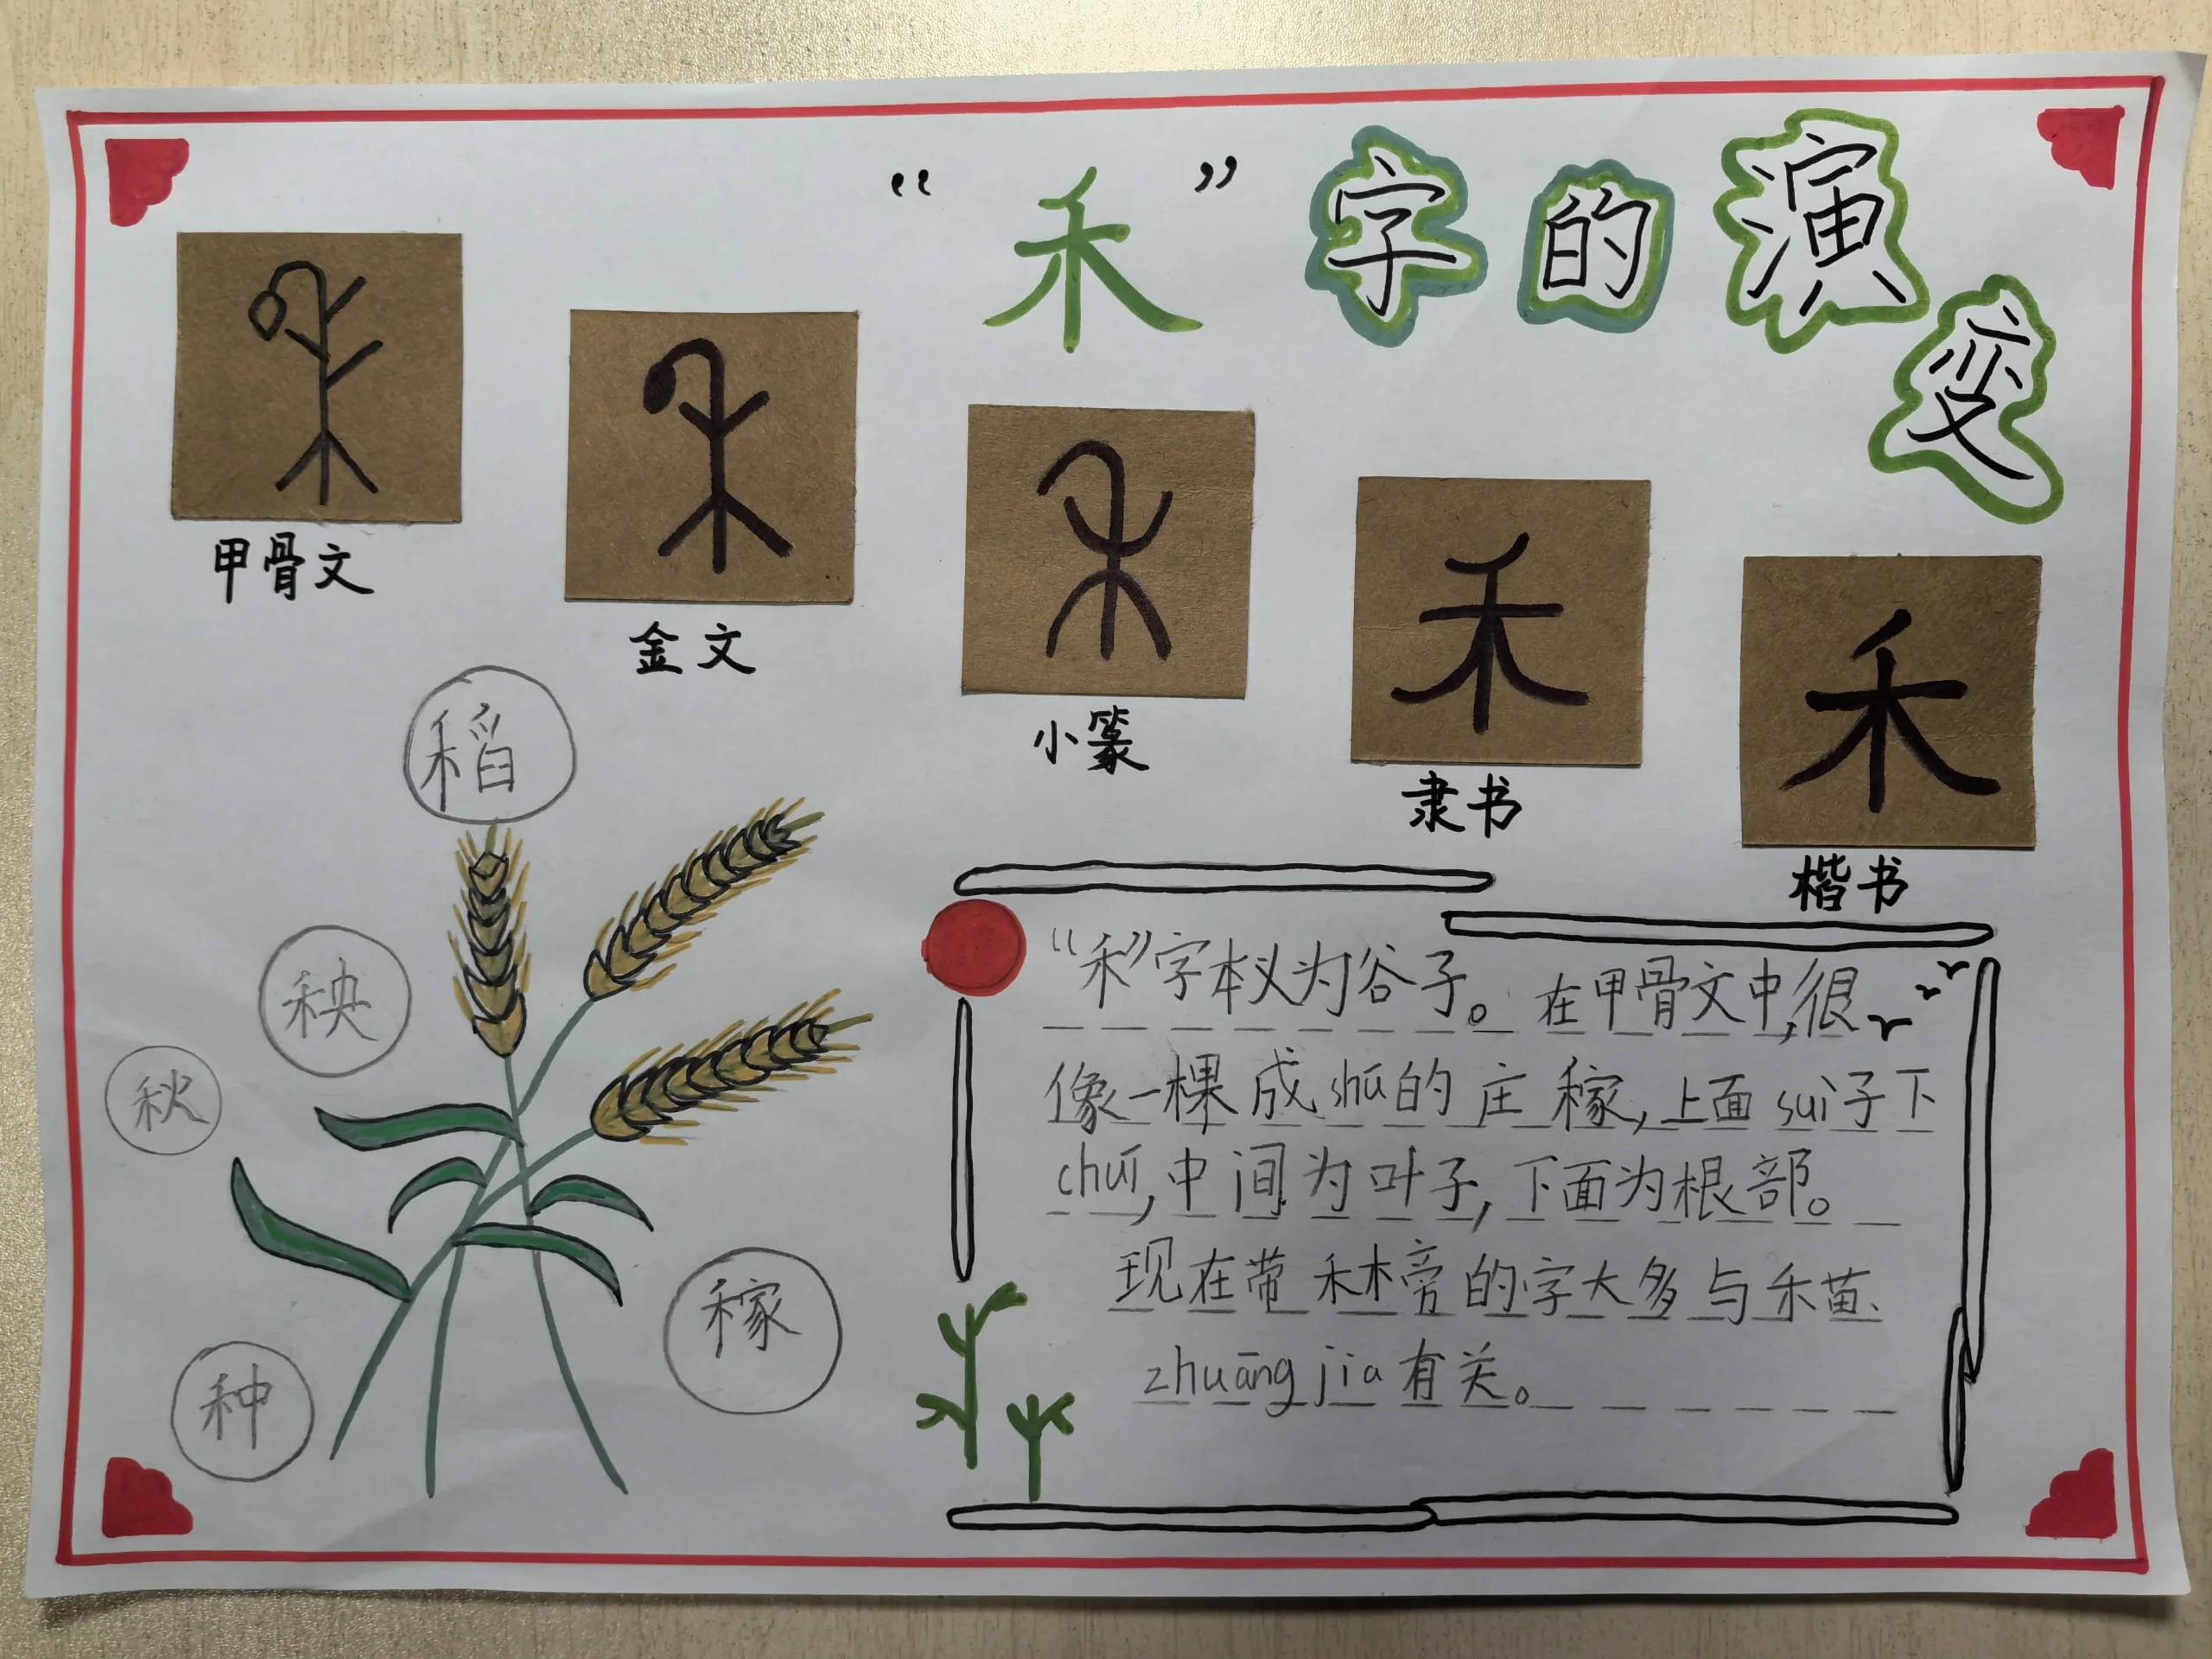 “禾”字的演变
甲骨文
金文
小篆
隶书
楷书
稻
秧
秋
种
稼
“禾”字本义为谷子。在甲骨文中,很
像一棵成shú的庄稼,上面suì子下
chuí,中间为叶子,下面为根部。
现在带禾木旁的字大多与禾苗、
zhuāngjia有关。